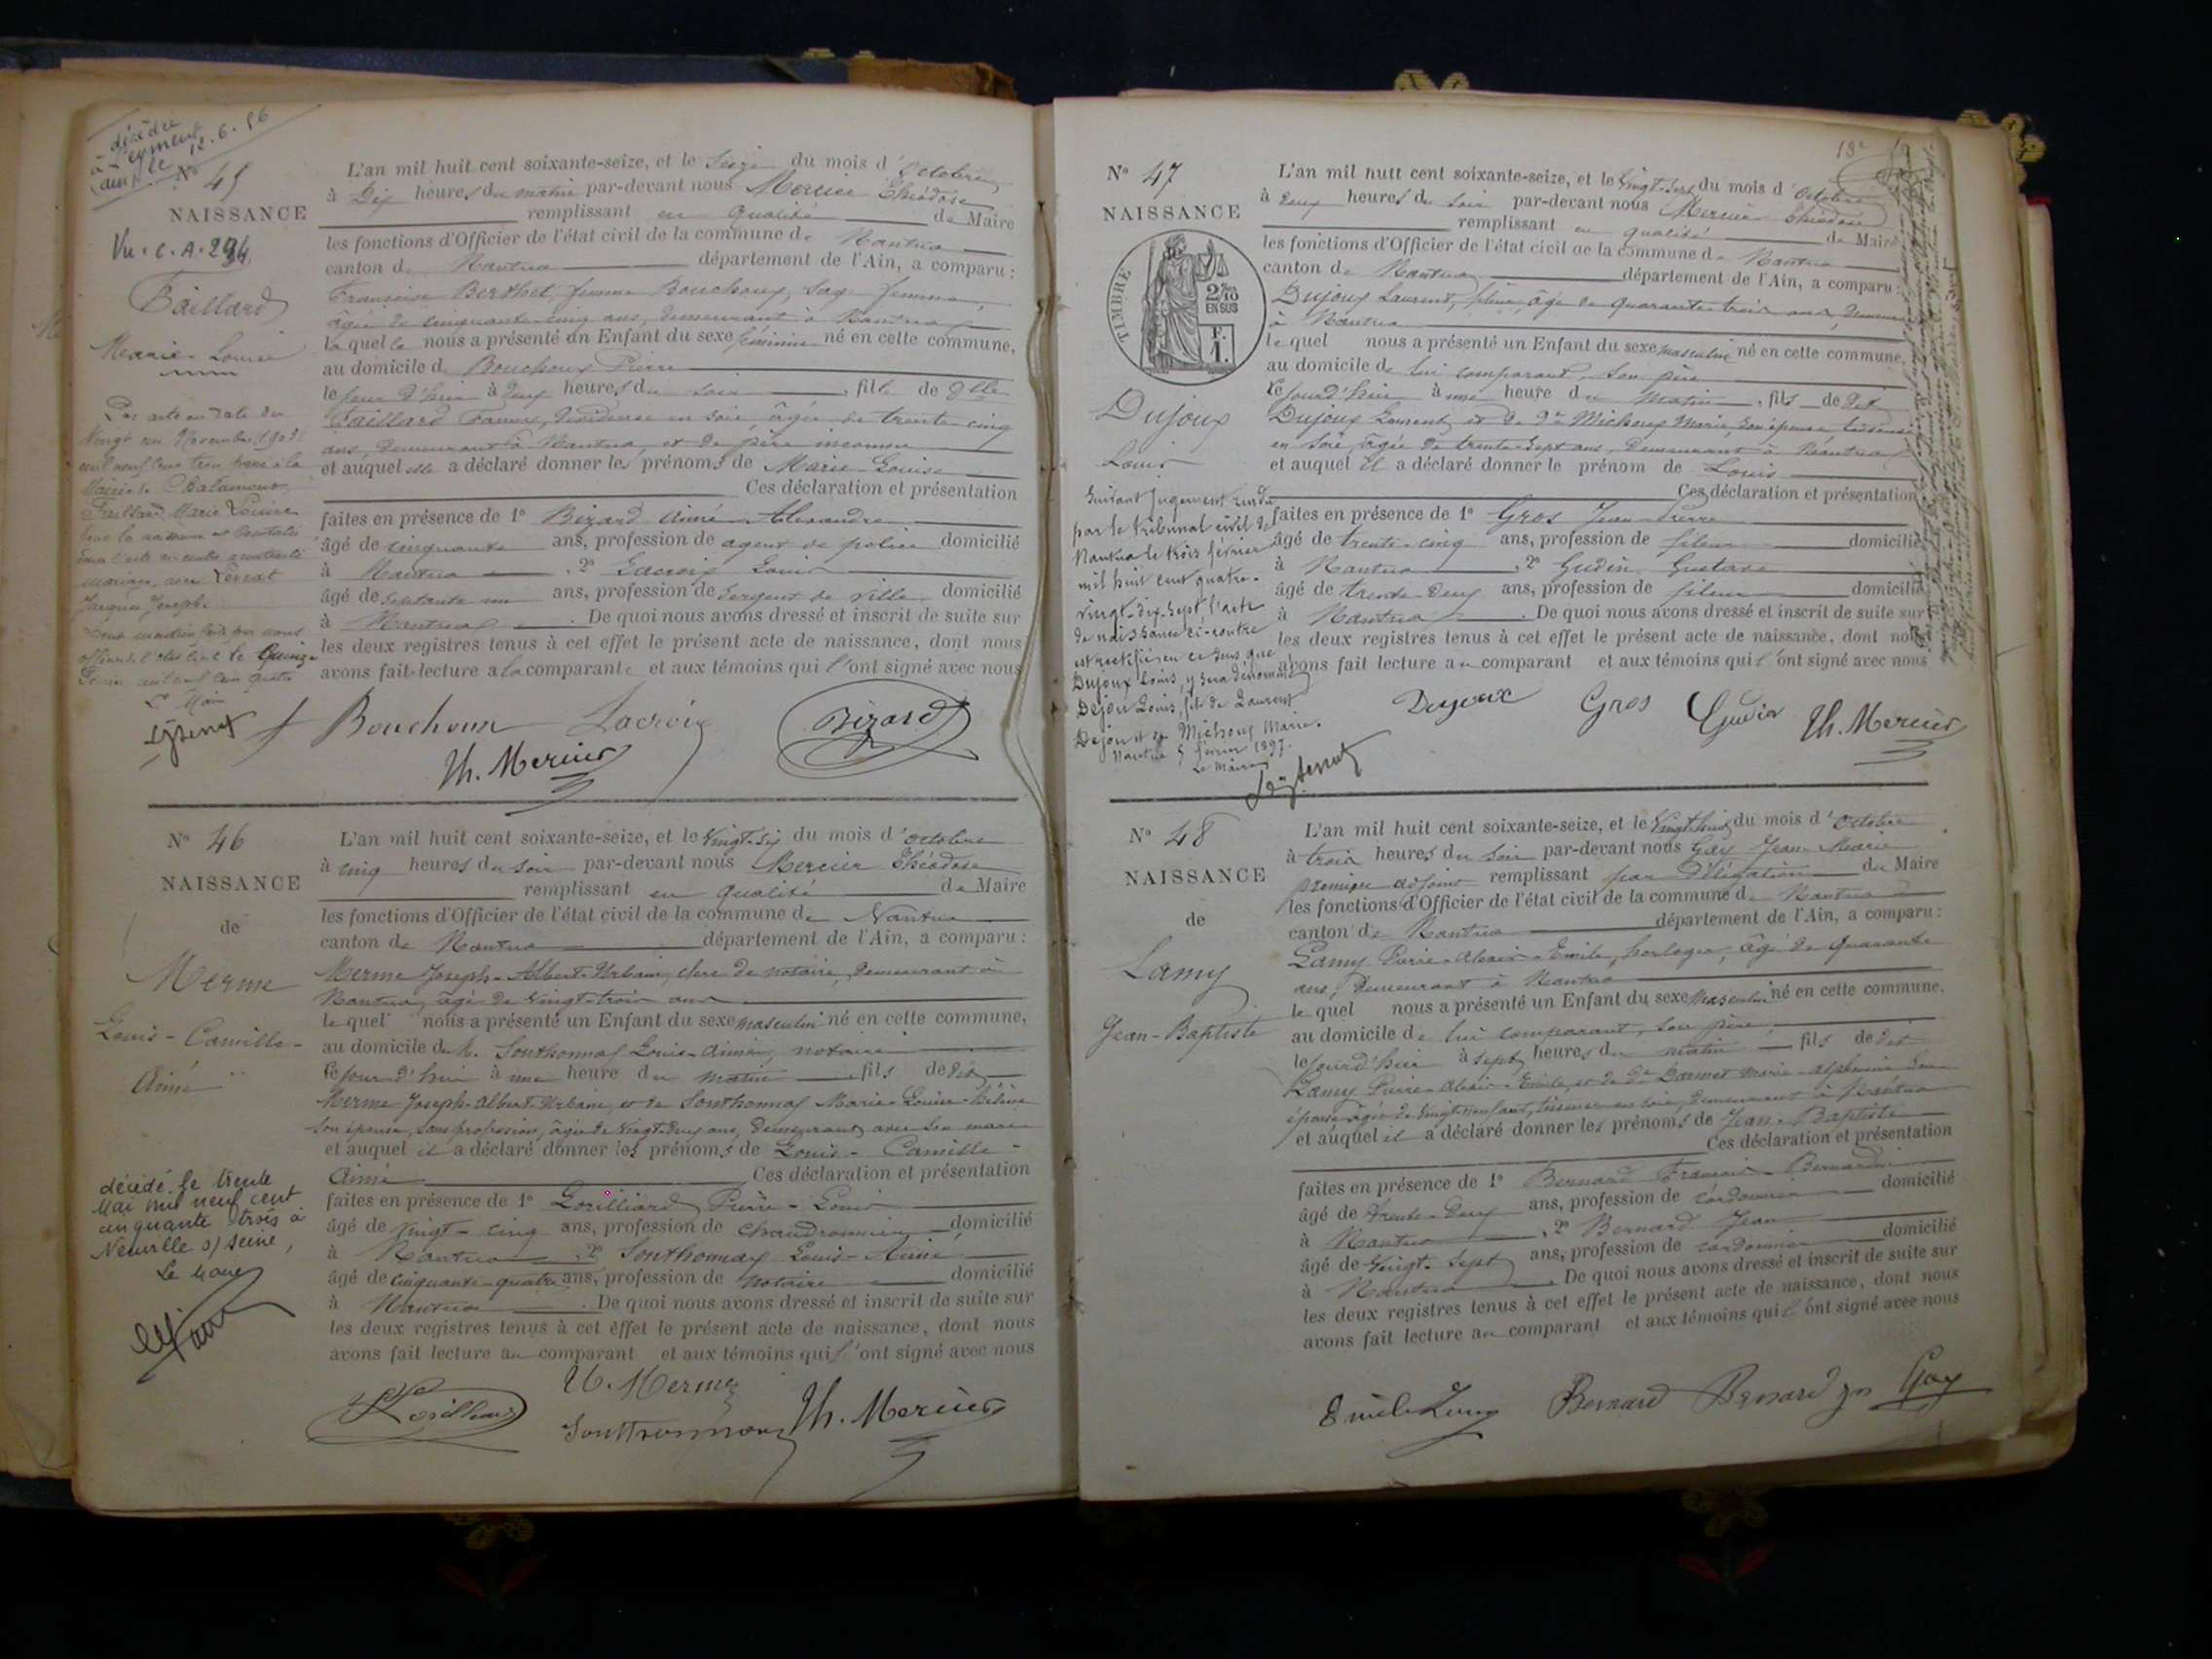 décédée
à Leyment
(ain) le 12.6.56
Nº 45
NAISSANCE
Vu. C. A. 294
Faillard
Marie-Louise
Par acte en date du
Vingt un Novembre 1903
mil neuf cent trois passé à la
Mairie de Chalamont,
Faillard Marie Louise
dont la naissance est constatée
dans l'acte ci-contre a contracté
mariage avec
Jacques Joseph.
Dont mention faite par nous
officier de l'état civil le Quinze
mil neuf cent quatre
Le Maire
L'an mil huit cent soixante-seize, et le Seize du mois d'Octobre
à Dix heures du matin par-devant nous Mercier Théodose
remplissant en qualité de Maire
les fonctions d'Officier de l'état civil de la commune de Nantua
canton de Nantua département de l'Ain, a comparu :
Françoise Berthet, femme Bouchoux, sage femme,
âgée de cinquante-cinq ans, demeurant à Nantua
laquelle nous a présenté un Enfant du sexe féminin né en cette commune,
au domicile de Bouchoux Pierre
le jour d'hier à deux heures du soir, fille de Dlle
Faillard Fanny, dévideuse en soie, âgée de trente-cinq
ans, demeurant à Nantua, et de père inconnu
et auquel elle a déclaré donner les prénoms de Marie-Louise
Ces déclaration et présentation
faites en présence de 1º Bizard Aimé Alexandre
âgé de cinquante ans, profession de agent de police domicilié
à Nantua, 2º Lacroix Louis
âgé de Septante un ans, profession de Sergent de Ville domicilié
à Nantua. De quoi nous avons dressé et inscrit de suite sur
les deux registres tenus à cet effet le présent acte de naissance, dont nous
avons fait lecture à la comparante et aux témoins qui l'ont signé avec nous
Bouchoux Lacroix Bizard
Th. Mercier
Nº 46
NAISSANCE
de
Merme
Louis-Camille-
Aimé
décédé le trente
Mai mil neuf cent
cinquante trois à
Neuville s/ Seine,
Le Maire
L'an mil huit cent soixante-seize, et le Vingt-six du mois d'octobre
à cinq heures du soir par-devant nous Mercier Théodose
remplissant en qualité de Maire
les fonctions d'Officier de l'état civil de la commune de Nantua
canton de Nantua département de l'Ain, a comparu :
Merme Joseph-Albert-Urbain, clerc de notaire, demeurant à
Nantua, âgé de Vingt-trois ans
lequel nous a présenté un Enfant du sexe masculin né en cette commune,
au domicile de M. Sonthonnax Louis-Aimé, notaire
le jour d'hui à une heure du matin, fils de dit
Merme Joseph-Albert-Urbain, et de Sonthonnax Marie-Louise-Hélène
son épouse, sans profession, âgée de Vingt-deux ans, demeurant avec son mari
et auquel il a déclaré donner les prénoms de Louis-Camille-
Aimé Ces déclaration et présentation
faites en présence de 1º Lorilliard Pierre-Louis
âgé de Vingt-cinq ans, profession de Chaudronnier domicilié
à Nantua, 2º Sonthonnax Louis-Aimé
âgé de cinquante-quatre ans, profession de notaire domicilié
à Nantua. De quoi nous avons dressé et inscrit de suite sur
les deux registres tenus à cet effet le présent acte de naissance, dont nous
avons fait lecture au comparant et aux témoins qui l'ont signé avec nous
U. Merme
Lorilliard Sonthonnax Th. Mercier
Nº 47
NAISSANCE
TIMBRE
2/10
EN SUS
F.
1.
Dujoux
Louis
Suivant Jugement rendu
par le tribunal civil de
Nantua le trois février
mil huit cent quatre-
vingt-dix-sept l'acte
de naissance ci-contre
est rectifié en ce sens que
Dujoux Louis, y sera dénommé
Dejou Louis, fils de Laurent
Dejou et de Michoux Marie.
Nantua 5 février 1897.
Le Maire
L'an mil huit cent soixante-seize, et le Vingt-sept du mois d'Octobre
à deux heures du soir par-devant nous Mercier Théodose
remplissant en qualité de Maire
les fonctions d'Officier de l'état civil de la commune de Nantua
canton de Nantua département de l'Ain, a comparu :
Dujoux Laurent, fileur, âgé de quarante-trois ans, demeurant
à Nantua
lequel nous a présenté un Enfant du sexe masculin né en cette commune,
au domicile de lui comparant, son père
le jourd'hui à une heure du matin, fils de dit
Dujoux Laurent, et de De Michoux Marie, son épouse, tisseuse
en soie, âgée de trente-sept ans, demeurant à Nantua
et auquel il a déclaré donner le prénom de Louis
Ces déclaration et présentation
faites en présence de 1º Gros Jean-Pierre
âgé de trente-cinq ans, profession de fileur domicilié
à Nantua, 2º Gudin Gustave
âgé de trente-deux ans, profession de fileur domicilié
à Nantua. De quoi nous avons dressé et inscrit de suite sur
les deux registres tenus à cet effet le présent acte de naissance, dont nous
avons fait lecture au comparant et aux témoins qui l'ont signé avec nous
Dujoux Gros Gudin Th. Mercier
Nº 48
NAISSANCE
de
Lamy
Jean-Baptiste
L'an mil huit cent soixante-seize, et le Vingt-huit du mois d'Octobre
à trois heures du soir par-devant nous Gay Jean-Marie
premier adjoint remplissant par délégation du Maire
les fonctions d'Officier de l'état civil de la commune de Nantua
canton de Nantua département de l'Ain, a comparu :
Lamy Pierre-Alexis-Emile, horloger, âgé de Quarante
ans, demeurant à Nantua
lequel nous a présenté un Enfant du sexe masculin né en cette commune,
au domicile de lui comparant, son père,
le jourd'hier à sept heures du matin, fils de dit
Lamy Pierre-Alexis-Emile, et de De Marie-Alphonsine son
épouse âgée de vingt-neuf ans, tisseuse en soie, demeurant à Nantua
et auquel il a déclaré donner les prénoms de Jean-Baptiste
Ces déclaration et présentation
faites en présence de 1º Bernard François-Bernardin
âgé de trente-deux ans, profession de cordonnier domicilié
à Nantua, 2º Bernard Jean
âgé de Vingt-sept ans, profession de cordonnier domicilié
à Nantua. De quoi nous avons dressé et inscrit de suite sur
les deux registres tenus à cet effet le présent acte de naissance, dont nous
avons fait lecture au comparant et aux témoins qui l'ont signé avec nous
Emile Lamy Bernard Bernard Jn Gay